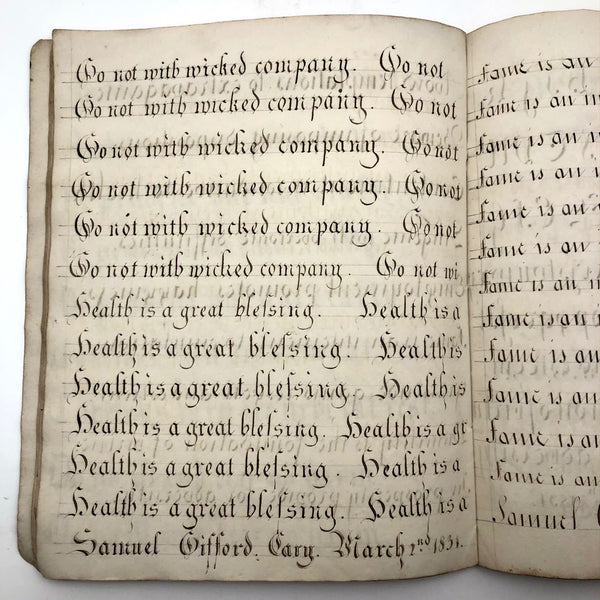 Go not with wicked company. Go not
Go not with wicked company. Go not
Go not with wicked company. Go not
Go not with wicked company. Go not
Go not with wicked company. Go not
Go not with wicked company. Go not wi
Health is a great bleſsing. Health is a
Health is a great bleſsing. Health is
Health is a great bleſsing. Health is
Health is a great bleſsing. Health is a gr
Health is a great bleſsing. Health is a
Health is a great bleſsing. Health is a
Samuel Gifford. Cary. March 2nd 1831.
Fame is an
Fame is an in
Fame is an in
Fame is an i
Fame is an
Fame is an
Fame is an in
Fame is an i
Fame is an
Fame is an
Fame is an
Fame is an
Samuel